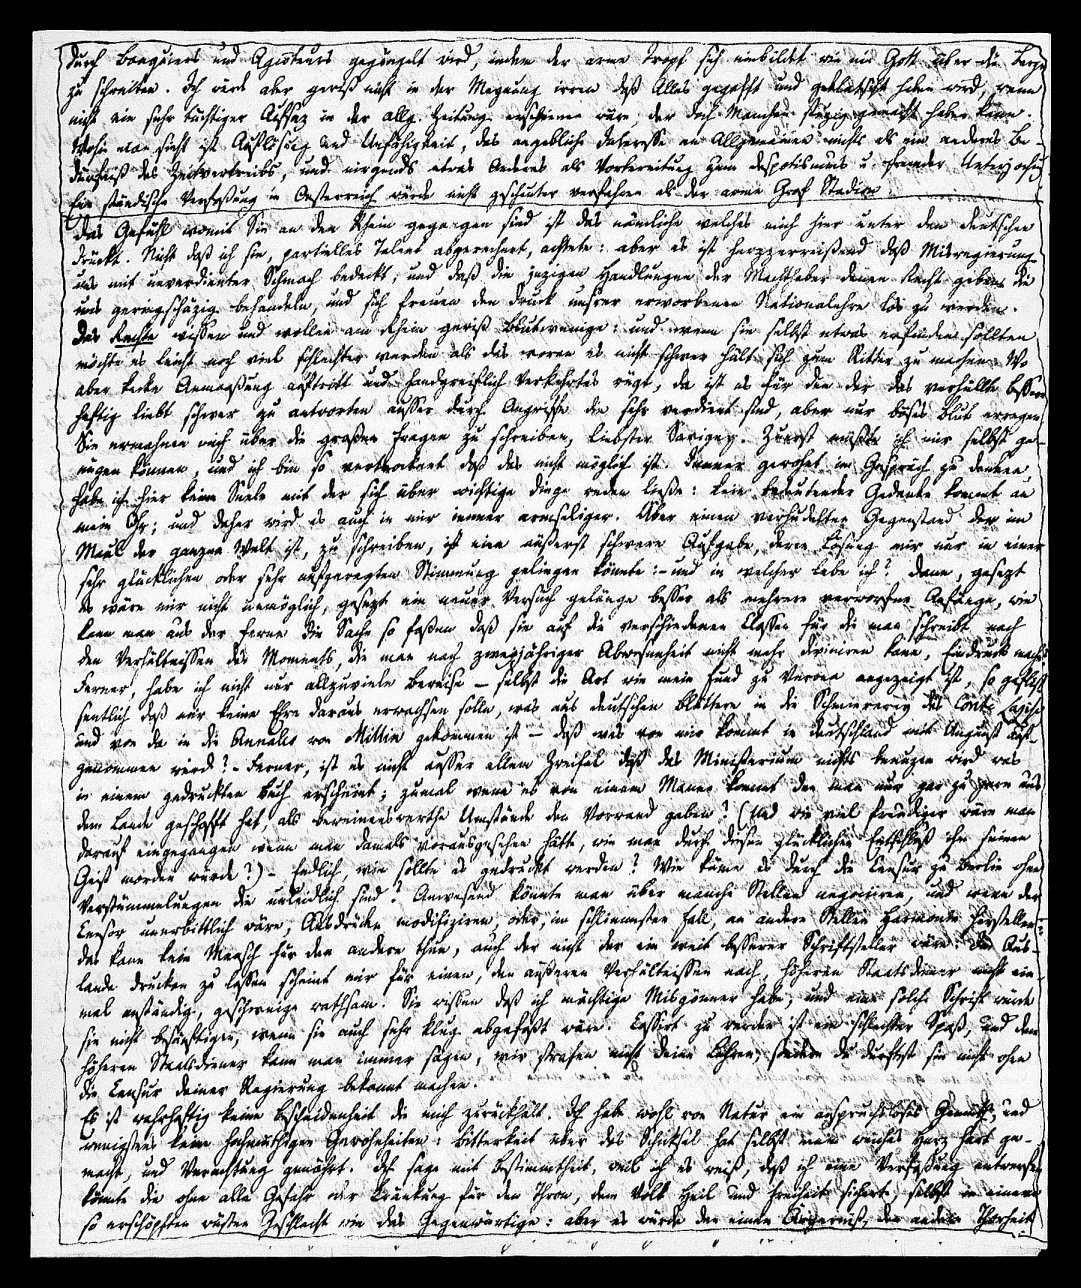 durch Banquiers und Agioteurs gegängelt wird, indem der arme Tropf sich einbildet wie ein Gott über die Berge
zu schreiten. Ich würde aber gewiß nicht in der Meynung irren daß Alles gegafft und geklatscht haben wird, wenn
nicht ein sehr tüchtiger Aufsaz in der allg. Zeitung erschienen wäre der doch Manchen stuzig gemacht haben kann.
Wohin man sieht ist Auflösung und Unfähigkeit, das angebliche Interesse am Allgemeinen nichts als ein anderes Be-
dürfniß des Zeitvertreibs, und nirgends etwas Anderes als Vorbereitung zum Despotismus u. fremder Unterjochung
Eine ständische Verfaßung in Oesterreich würde nicht gescheuter verfahren als der arme Graf Stadion.
Das Gefühl womit Sie an den Rhein gegangen sind ist das nämliche welches mich hier unter den Deutschen
drückt. Nicht daß ich sie, partielles Talent abgerechnet, achtete: aber es ist herzzerreißend daß Misregierung
uns mit unverdienter Schmach bedeckt, und daß die jezigen Handlungen der Machthaber denen Recht geben die
uns geringschäzig behandeln, und sich freuen den Druck unsrer erworbenen Nationalehre los zu werden.
Das Rechte wissen und wollen am Rhein gewiß blutwenige: und wenn sie selbst etwas erfinden sollten
möchte es leicht noch viel schlechter werden als das woran es nicht schwer hält sich zum Ritter zu machen. Wo
aber kecke Anmaaßung auftritt und handgreiflich Verkehrtes rügt, da ist es für den der das verhüllte Bessere
heftig liebt schwer zu antworten ausser durch Angriffe die sehr verdient sind, aber nur böses Blut erregen.
Sie ermahnen mich über die großen Fragen zu schreiben, liebster Savigny. Zuerst müßte ich mir selbst ge-
nügen können, und ich bin so vertrocknet daß das nicht möglich ist. Immer gewohnt im Gespräch zu denken
habe ich hier keine Seele mit der sich über wichtige Dinge reden ließe: kein bedeutender Gedanke kommt an
mein Ohr; und daher wird es auch in mir immer armseliger. Aber einen verhudelten Gegenstand der im
Maul der ganzen Welt ist, zu schreiben, ist eine äußerst schwere Aufgabe, deren Lösung mir nur in einer
sehr glücklichen oder sehr aufgeregten Stimmung gelingen könnte: – und in welcher lebe ich? Dann, gesezt
es wäre mir nicht unmöglich, gesezt ein neuer Versuch gelänge besser als mehrere verworfne Anfänge, wie
kann man aus der Ferne die Sache so faßen daß sie auf die verschiedenen Classen für die man schreibt nach
den Verhältnissen des Moments, die man nach zweyjähriger Abwesenheit nicht mehr diviniren kann, Eindruck mache?
Ferner, habe ich nicht nur allzuviele Beweise – selbst die Art wie mein Fund zu Verona angezeigt ist, so geflis-
sentlich daß mir keine Ehre daraus erwachsen solle, was aus deutschen Blättern in die Schmiererey des
und von da in die Annales von Millin gekommen ist – daß was von mir kommt in Deutschland mit Ungunst auf-
genommen wird? – Ferner, ist es nicht ausser allem Zweifel daß das Ministerium nichts benuzen wird was
in einem gedruckten Buch erscheint; zumal wenn es von einem Manne kommt den man nur gar zu gern aus
dem Lande geschafft hat, als beweinenswerthe Umstände den Vorwand gaben? (Und wie viel freudiger wäre man
darauf eingegangen wenn man damals vorausgesehen hätte, wie man durch diesen glücklichen Entschluß ihm seinen
Geist morden würde?) – Endlich, wie sollte es gedruckt werden? Wie käme es durch die Censur zu Berlin ohne
Verstümmelungen die unleidlich sind? Anwesend könnte man über manche Stellen negociiren, und wenn der
Censor unerbittlich wäre, Ausdrücke modifiziren, oder, im schlimmsten Fall, an andern Stellen Harmonie herstellen:
das kann kein Mensch für den andern thun, auch der nicht der ein weit besserer Schriftsteller wäre. Im Aus-
lande drucken zu lassen scheint mir für einen, den äußeren Verhältnissen nach, höheren Staatsdiener nicht ein-
mal anständig, geschweige rathsam. Sie wissen daß ich mächtige Misgönner habe, und eine solche Schrift würde
sie nicht besänftigen, wenn sie auch sehr klug abgefaßt wäre. Cassirt zu werden ist ein schlechter Spaß, und dem
höheren Staatsdiener kann man immer sagen, wir strafen nicht deine Lehren, sondern du durftest sie nicht ohne
die Censur deiner Regierung bekannt machen.
Es ist wahrhaftig keine Bescheidenheit die mich zurückhält. Ich habe wohl von Natur ein anspruchloses Gemüth, und
wenigstens keine hochmüthigen Gewohnheiten: Bitterkeit über das Schicksal hat selbst mein weiches Herz hart ge-
macht, und Verachtung genährt. Ich sage mit Bestimmtheit, weil ich es weiß, daß ich eine Verfassung entwerfen
könnte die ohne alle Gefahr oder Kränkung für den Thron, dem Volk Heil und Freiheit sicherte, selbst in einem
so erschöpften wüsten Geschlecht wie das Gegenwärtige: aber es würde den einen Aergerniß, den andern Thorheit